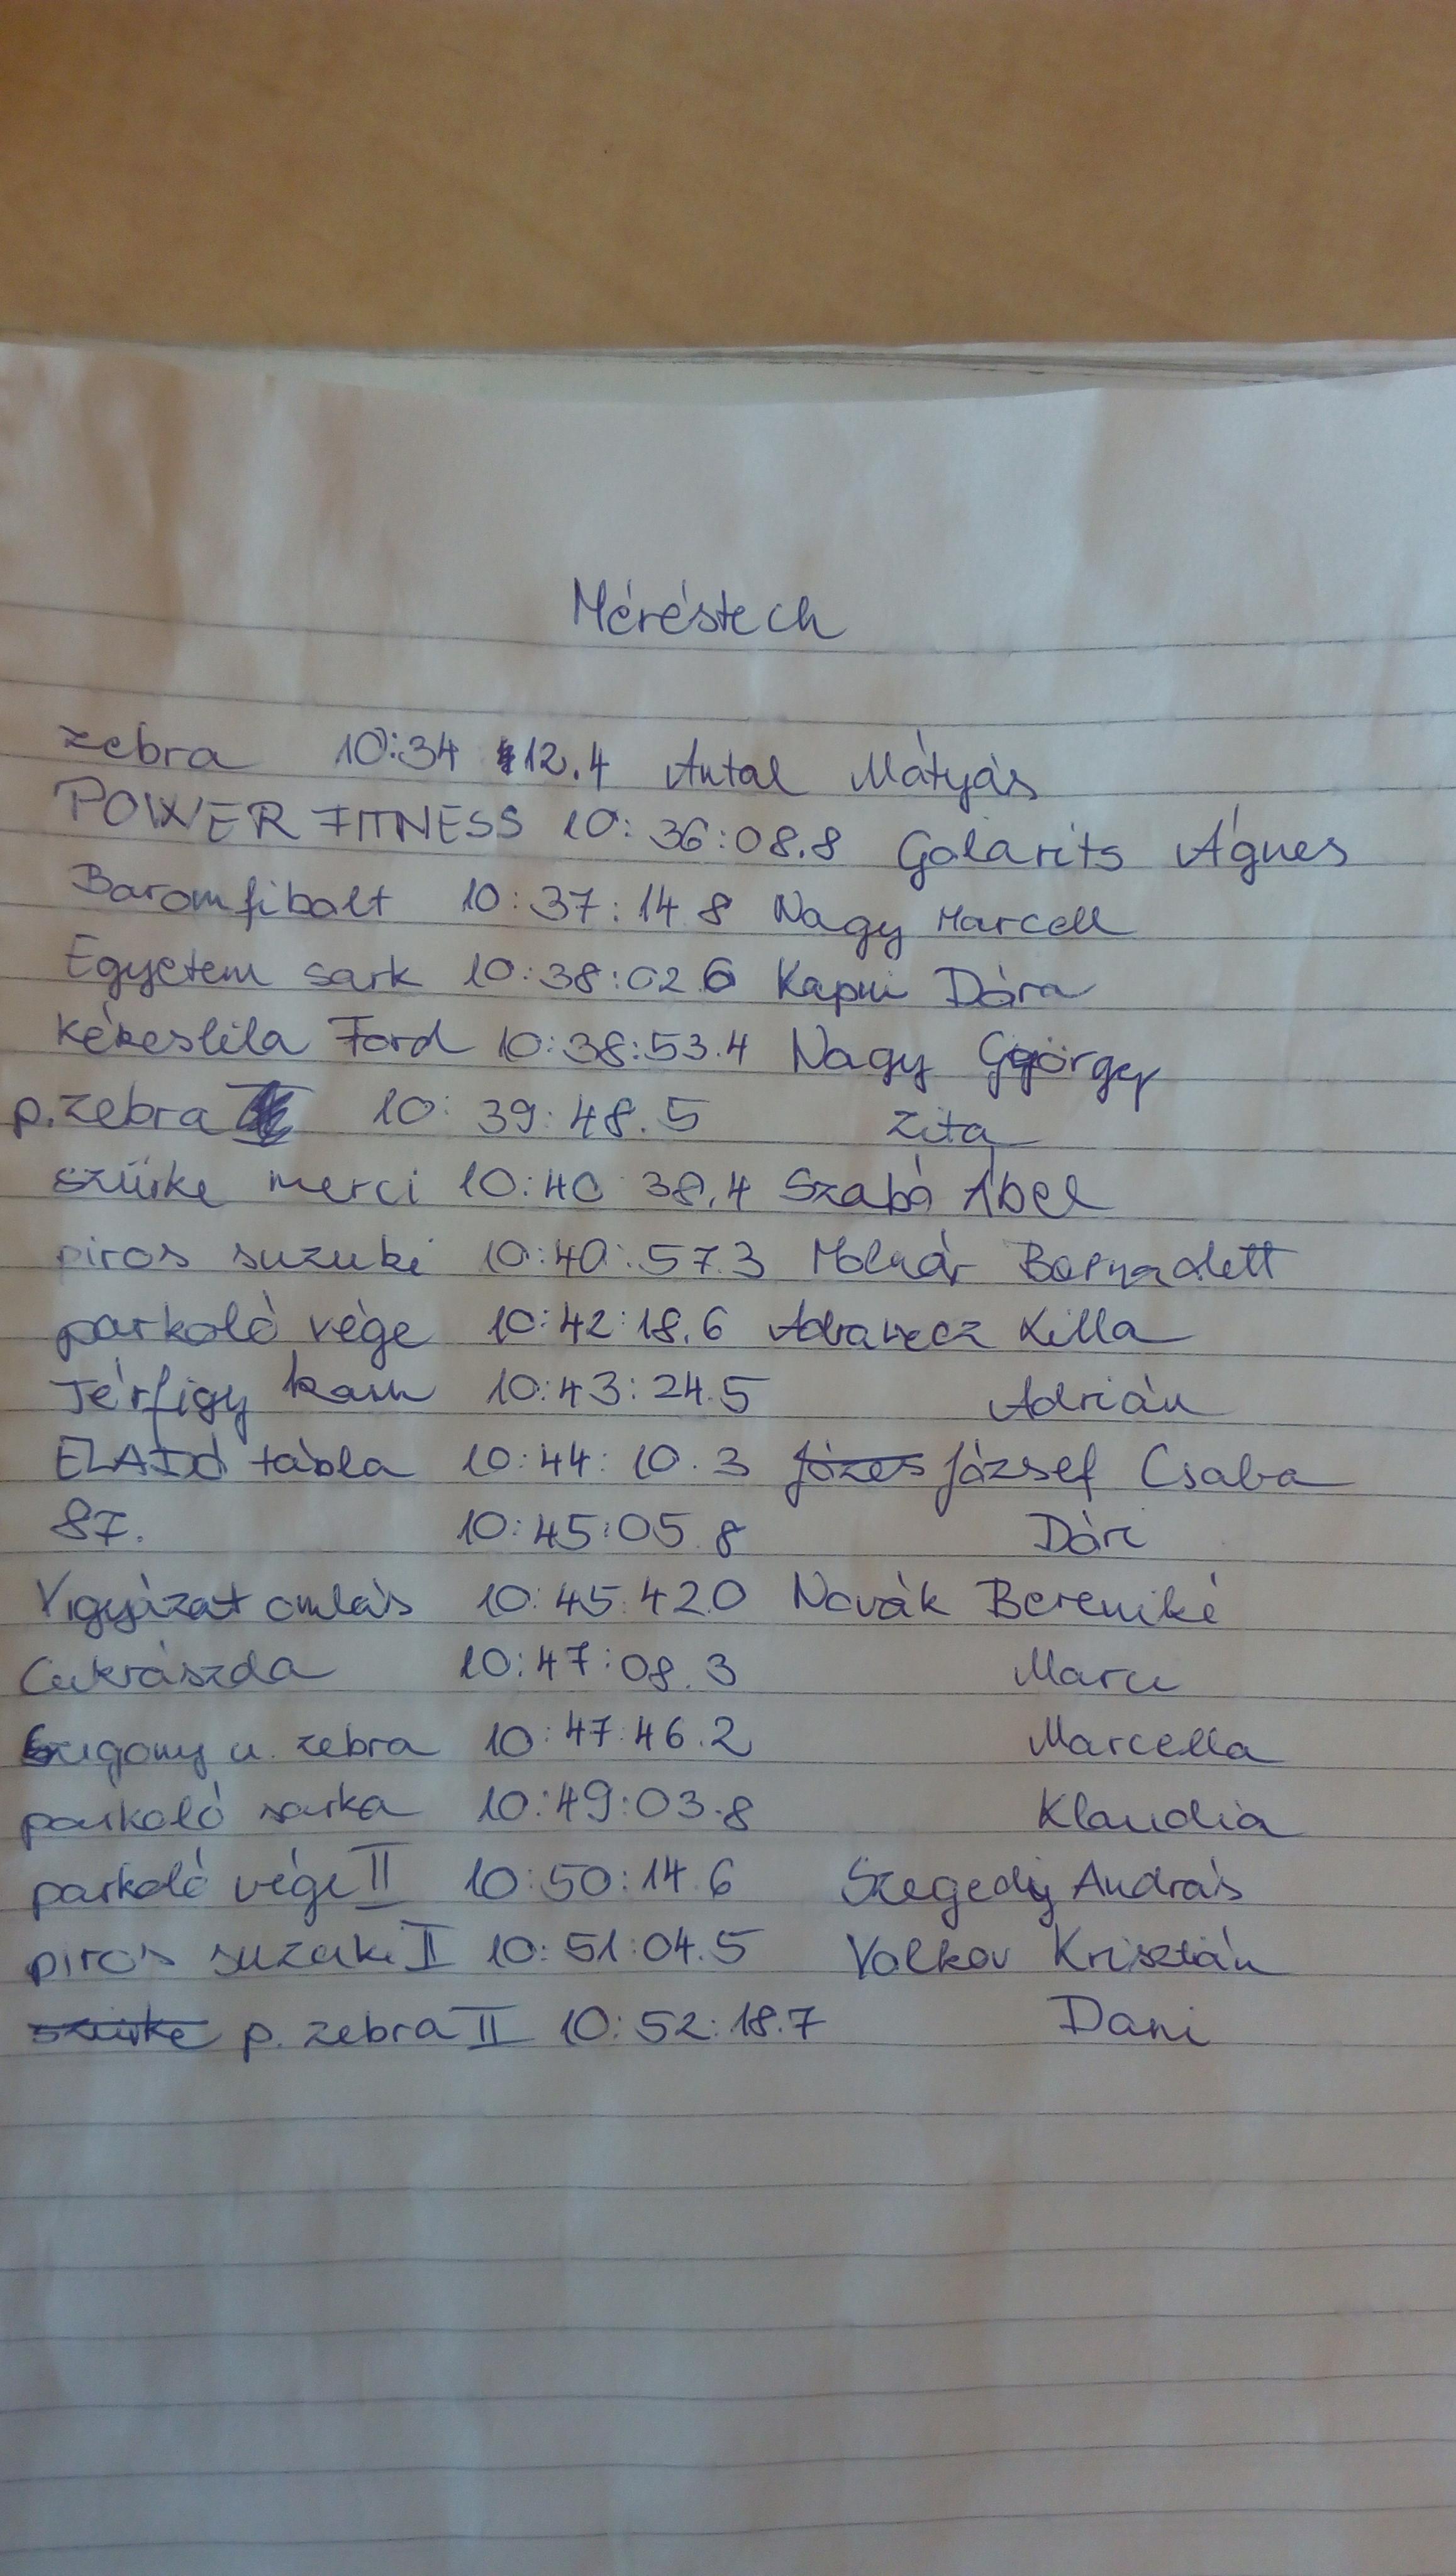 Méréstech
zebra 10:34 12.4 Antal Mátyás
POWER FITNESS 10:36:08.8 Golarits Ágnes
Baromfibolt 10:37:14 8 Nagy Marcell
Egyetem sark 10:38:02 6 Kapui Dóra
kékeslila Ford 10:38:53.4 Nagy György
p.zebra 10:39:48.5 Zita
szürke merci 10:40 38.4 Szabó Ábel
piros suzuki 10:40:57.3 Molnár Bernadett
parkoló vége 10:42:18.6 Lilla
Térfigy kam 10:43:24.5 Adrián
ELADÓ tábla 10:44:10.3 József Csaba
87. 10:45:05.8 Dóri
Vigyázat omlás 10:45:42.0 Novák Bereniké
Cukrászda 10:47:08.3 Marci
Szigony u. zebra 10:47:46.2 Marcella
parkoló sarka 10:49:03.8 Klaudia
parkoló vége II 10:50:14.6 Szegedy András
piros suzuki II 10:51:04.5 Volkov Krisztián
szürke p. zebra II 10:52:18.7 Dani